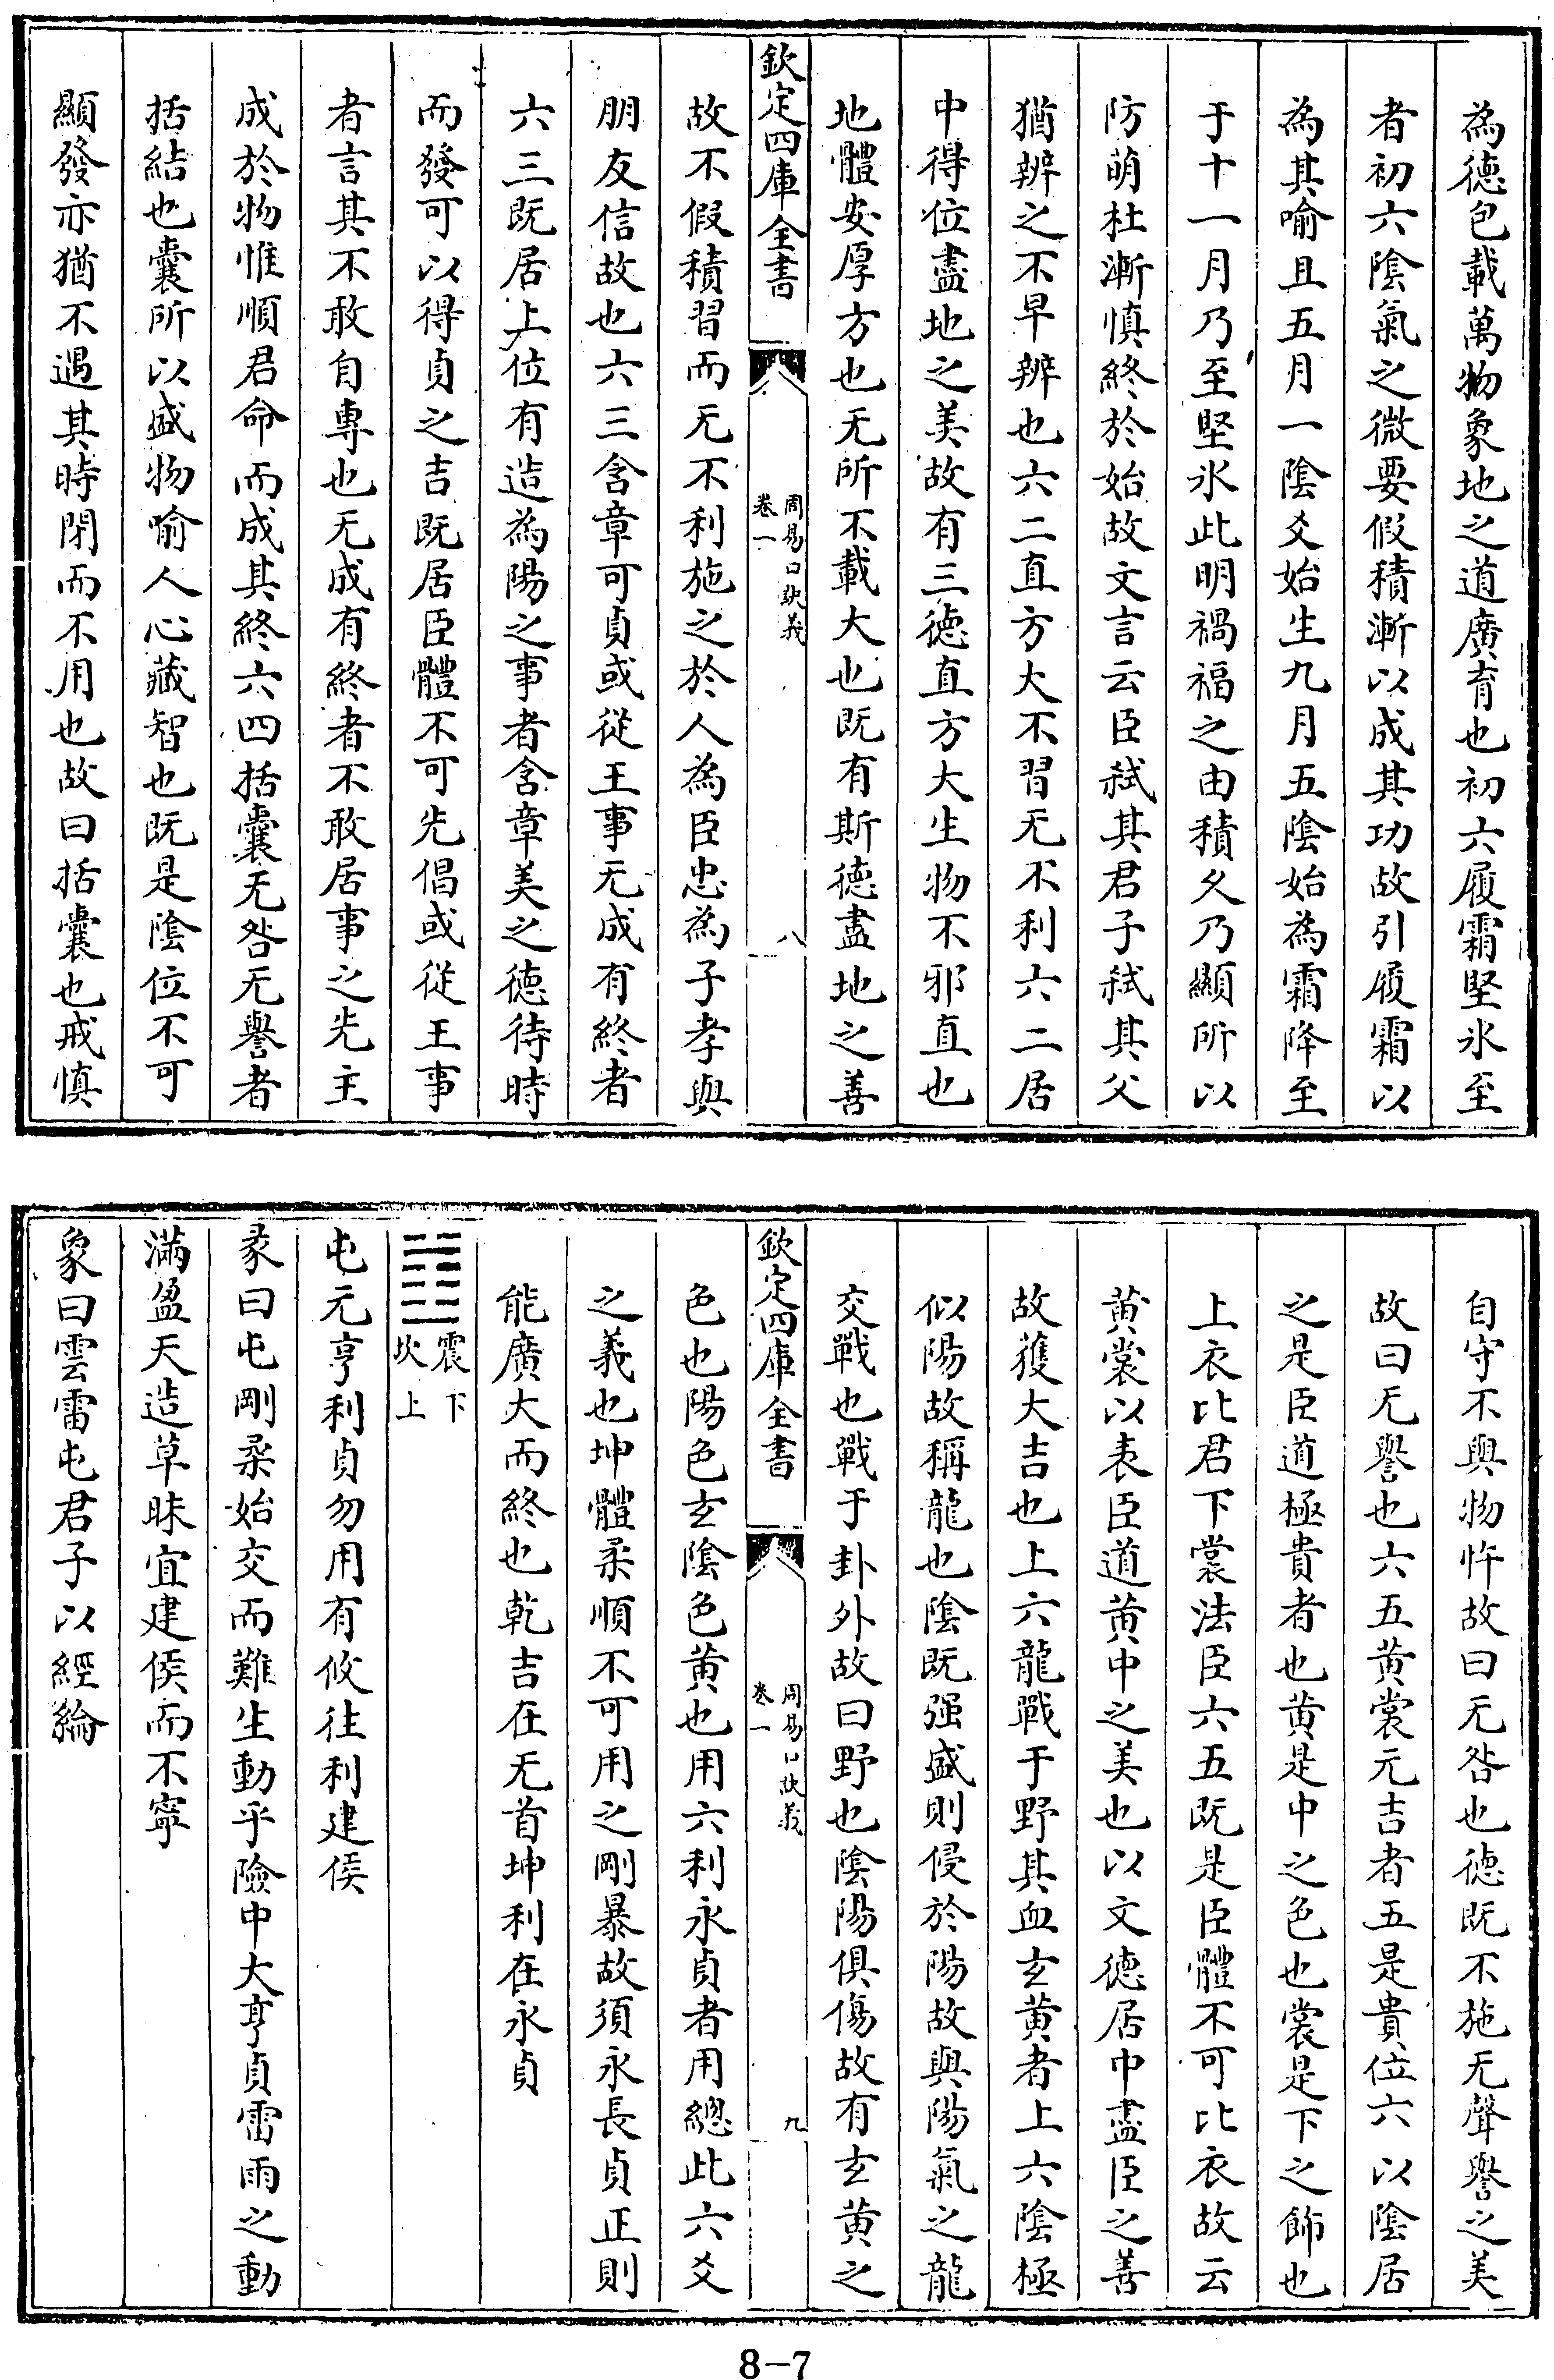 為德包載萬物象地之道廣育也初六履霜堅氷至
者初六陰氣之微要假積漸以成其功故引履霜以
為其喻且五月一陰爻始生九月五陰始為霜降至
于十一月乃至堅氷此明禍福之由積久乃顯所以
防萌杜漸慎終於始故文言云臣弑其君子弑其父
猶辨之不早辨也六二直方大不習无不利六二居
中得位盡地之美故有三德直方大生物不邪直也
地體安厚方也无所不載大也既有斯德盡地之善
欽定四庫全書
周易口訣義
卷一
八
故不假積習而无不利施之於人為臣忠為子孝與
朋友信故也六三含章可貞或從王事无成有終者
六三既居上位有造為陽之事者含章美之德待時
而發可以得貞之吉既居臣體不可先倡或從王事
者言其不敢自專也无成有終者不敢居事之先主
成於物惟順君命而成其終六四括囊无咎无譽者
括結也囊所以盛物喻人心藏智也既是陰位不可
顯發亦猶不遇其時閉而不用也故曰括囊也戒慎
自守不與物忤故曰无咎也德既不施无聲譽之美
故曰无譽也六五黄裳元吉者五是貴位六以陰居
之是臣道極貴者也黄是中之色也裳是下之飾也
上衣比君下裳法臣六五既是臣體不可比衣故云
黄裳以表臣道黄中之美也以文德居中盡臣之善
故獲大吉也上六龍戰于野其血玄黄者上六陰極
似陽故稱龍也陰既强盛則侵於陽故與陽氣之龍
交戰也戰于卦外故曰野也陰陽俱傷故有玄黄之
欽定四庫全書
周易口訣義
卷一
九
色也陽色玄陰色黄也用六利永貞者用總此六爻
之義也坤體柔順不可用之剛暴故須永長貞正則
能廣大而終也乾吉在无首坤利在永貞
䷂震下
坎上
屯元亨利貞勿用有攸往利建侯
彖曰屯剛柔始交而難生動乎險中大亨貞雷雨之動
滿盈天造草昧宜建侯而不寧
象曰雲雷屯君子以經綸
8-7